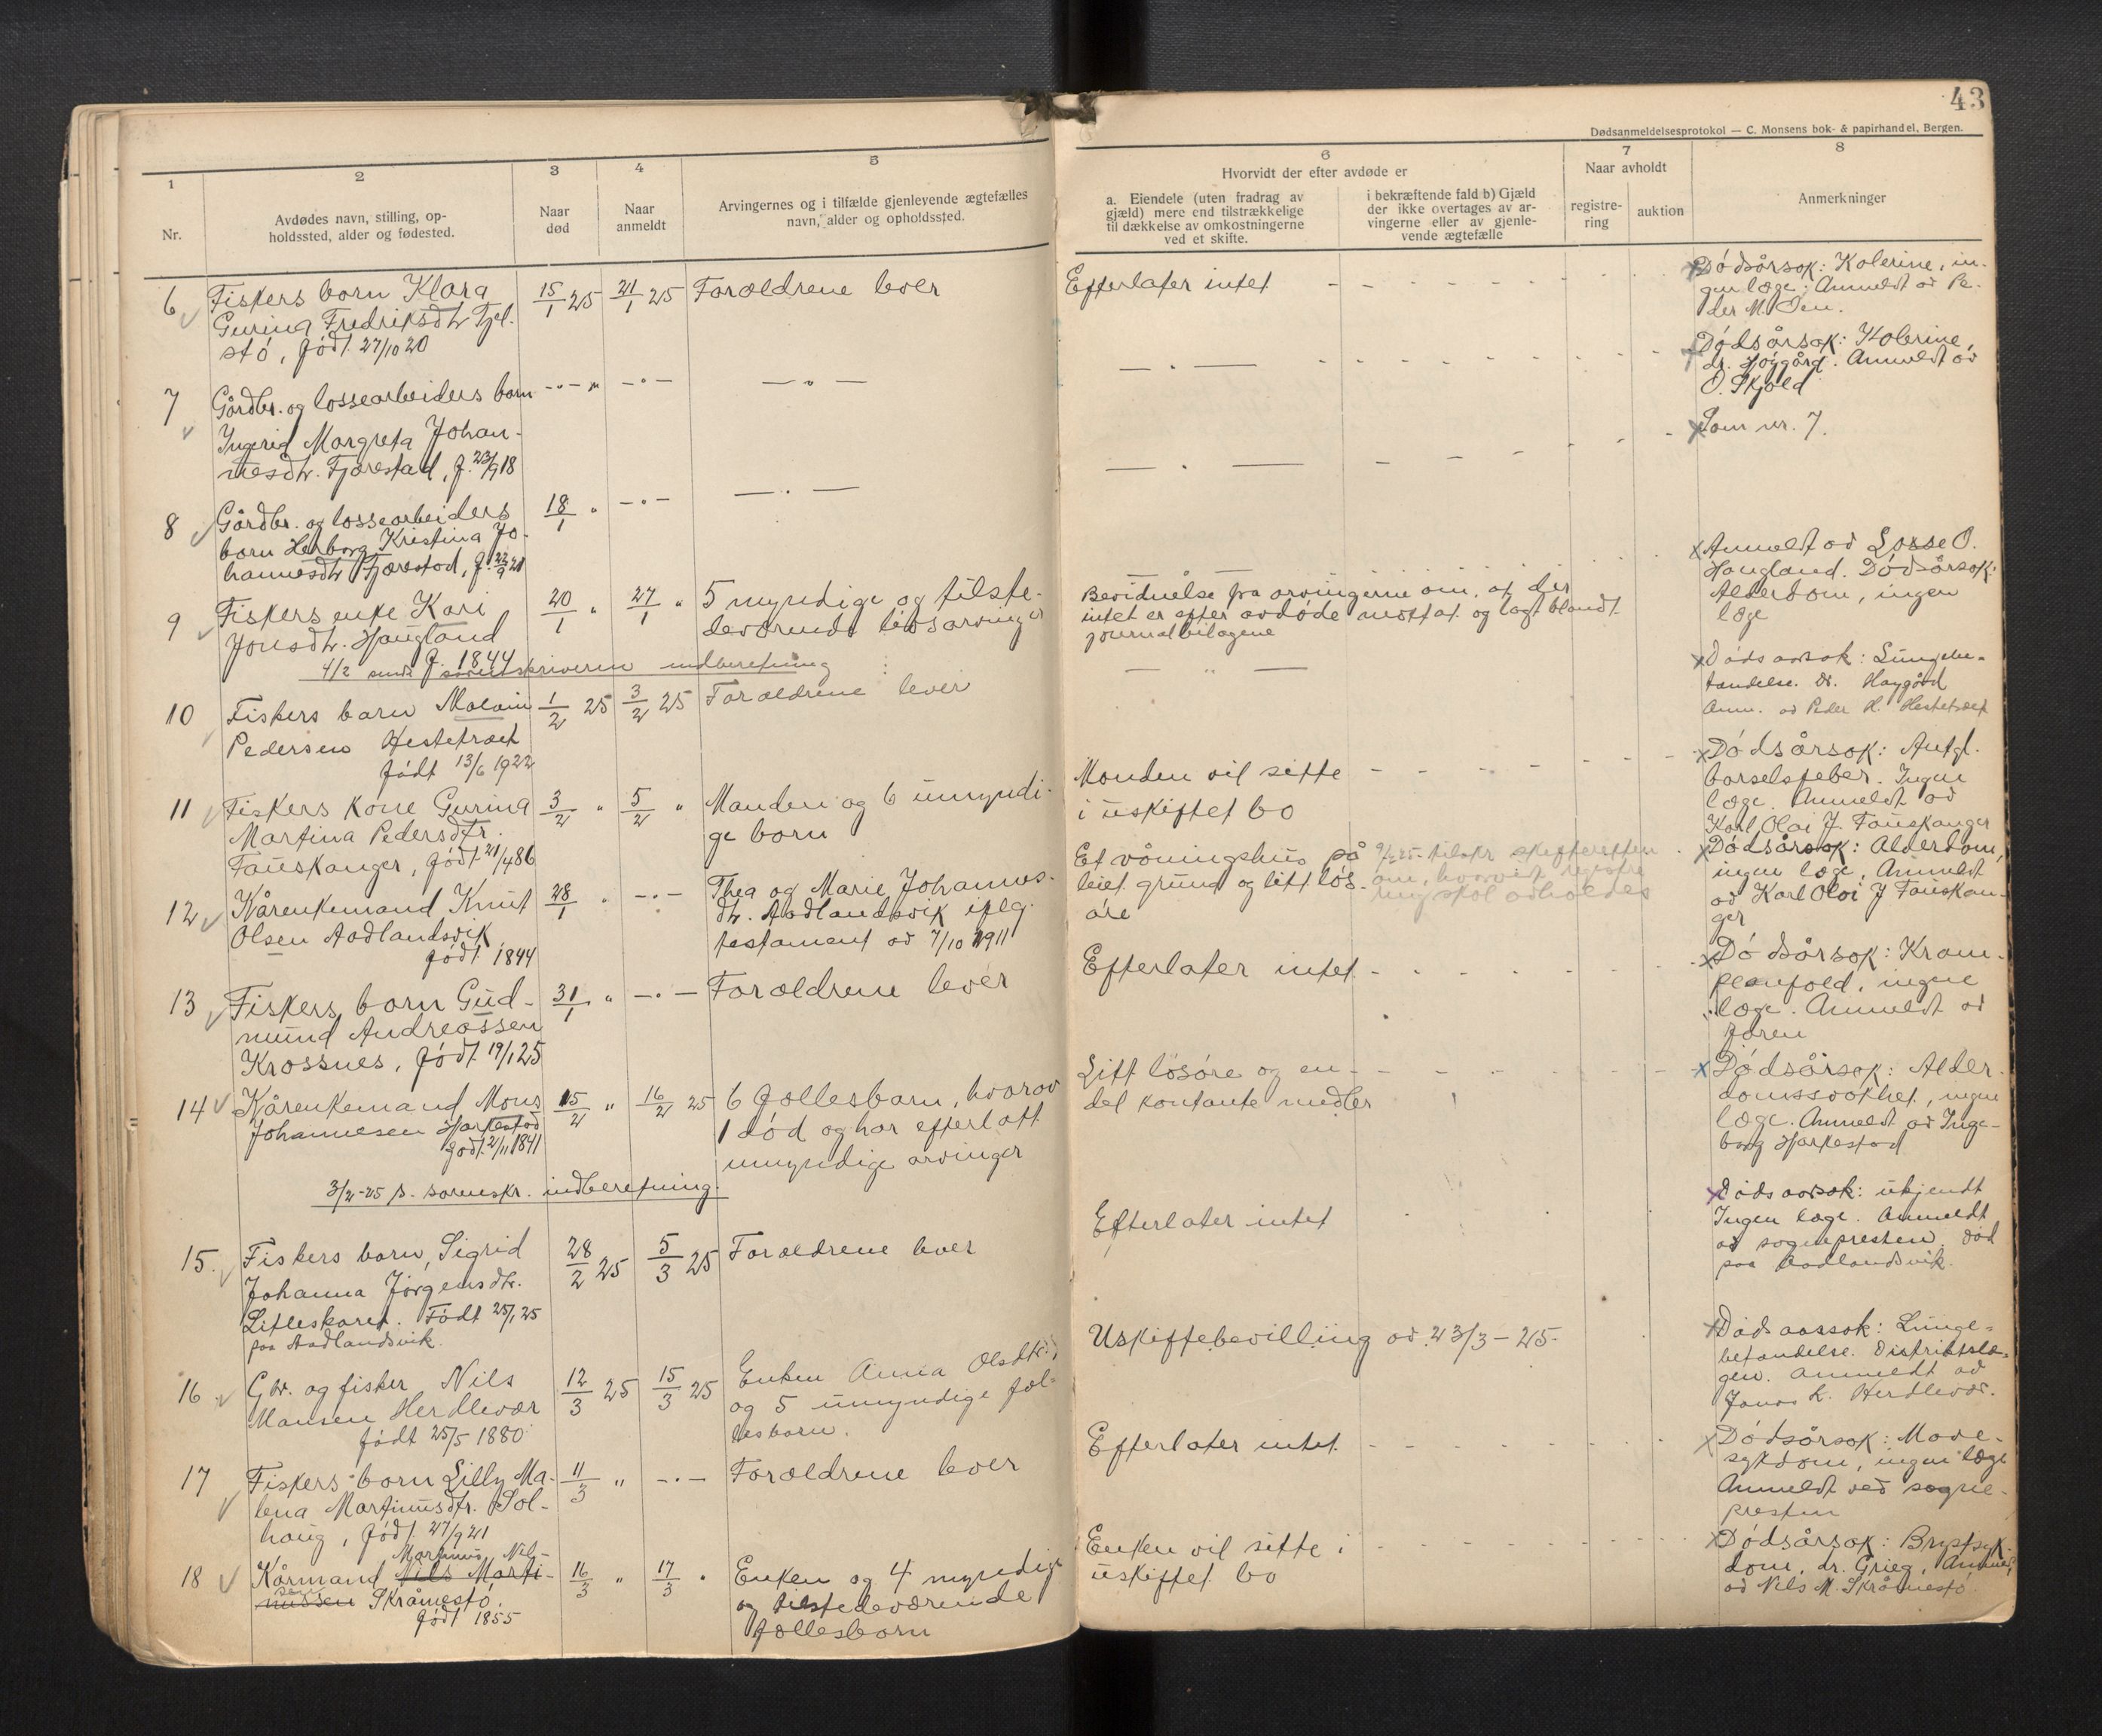 43
Dødsanmeldelsesprotokol — C. Monsens bok- & papirhandel, Bergen.
1
Nr.
2
Avdødes navn, stilling, op-
holdssted, alder og fødested.
3
Naar
død
4
Naar
anmeldt
5
Arvingernes og i tilfælde gjenlevende ægtefælles
navn, alder og opholdssted.
6
Hvorvidt der efter avdøde er
a. Eiendele (uten fradrag av
gjæld) mere end tilstrækkelige
til dækkelse av omkostningerne
ved et skifte.
i bekræftende fald b) Gjæld
der ikke overtages av ar-
vingerne eller av gjenle-
vende ægtefælle
7
Naar avholdt
registre-
ring
auktion
8
Anmerkninger
6
Fiskers barn Klara
Gurina Fredriksdtr Tjel-
stø, født 27/10 20
15/1 25
21/1 25
Forældrene lever
Efterlater intet
Dødsårsak: Kolerine, in-
gen læge. Anmeldt av Pe-
der M.
7
Gårdbr. og lossearbeiders barn
Ingerid Margreta Johan-
nesdtr. Fjærestad, f. 23/9 18
Dødsårsak: Kolerine,
dr. Høygård. Anmeldt av
O. Skjold
8
Gårdbr. og lossearbeiders
barn Herborg Kristina Jo-
hannesdtr Fjærestad, f. 22/9 21
18/1 "
Som nr. 7.
9
Fiskers enke Kari
Jonsdtr. Haugland
f. 1844
20/1 "
27/1 "
5 myndige og tilste-
deværende livsarvinger
Bevidnelse fra arvingerne om, at der
intet er efter avdøde mottat og lagt blandt
journalbilagene
Anmeldt av Lasse O.
Haugland. Dødsårsak:
Alderdom, ingen
læge
4/2 sendt sorenskriveren indberetning
10
Fiskers barn Malvin
Pedersen Hestetræet
født 13/6 1922
1/2 25
3/2 25
Forældrene lever
Dødsaarsak: Lungebe-
tændelse. Dr. Høygård
Anm. av Peder H. Hestetræet
11
Fiskers kone Gurina
Martina Pedersdtr.
Fauskanger, født 21/4 86
3/2 "
5/2 "
Manden og 6 umyndi-
ge barn
Manden vil sitte
i uskiftet bo
Dødsårsak: Antgl.
barselfeber. Ingen
læge. Anmeldt av
Karl Olai J. Fauskanger
12
Kårenkemand Knut
Olsen Aadlandsvik,
født 1844
28/1 "
Thea og Marie Johannes-
dtr. Aadlandsvik iflg.
testament av 7/10 1911
Et våningshus på
leiet grund og litt løs-
øre
om, hvorvidt registre-
ring skal avholdes
Dødsårsak: Alderdom,
ingen læge, Anmeldt
av Karl Olai J Fauskan-
ger
13
Fiskers barn Gud-
mund Andreassen
Krossnes, født 19/1 25
31/1 "
Forældrene lever
Efterlater intet
Dødsårsak: Kram-
peanfald, ingen
læge. Anmeldt av
faren
14
Kårenkemand Mons
Johannesen Harkestad
født 2/11 1841
15/2 "
16/2 25
6 fællesbarn, hvorav
1 død og har efterlatt
umyndige arvinger
Litt løsøre og en
del kontante midler
Dødsårsak: Alder-
domssvakhet, ingen
læge. Anmeldt av Inge-
borg Harkestad
3/2-25 s. sorenskr. indberetning.
15.
Fiskers barn, Sigrid
Johanna Jørgensdtr.
Litleskaret. Født 25/1 25
paa Aadlandsvik.
28/2 25
5/3 25
Forældrene lever
Efterlater intet
Dødsaarsak: ukjendt
Ingen læge. Anmeldt
av sognepresten. Død
paa Aadlandsvik.
16
Gbr. og fisker Nils
Mansen Herdlevær
født 25/5 1880
12/3 25
15/3 25
Enken Anna Olsdtr.
og 5 umyndige fæl-
lesbarn.
Uskiftebevilling av 23/3-25
Dødsaarsak: Lunge-
betændelse. Distriktslæ-
gen. Anmeldt av
Jonas L. Herdlevær.
17
Fiskers barn Lilly Ma-
lena Martinusdtr. Sol-
haug, født 27/9 21
11/3 "
Forældrene lever
Efterlater intet
Dødsårsak: Mave-
sykdom, ingen læge
Anmeldt ved sogne-
presten
18
Martinus Nil-
Kårmand Nils Marti-
sen
nussen Skråmestø.
født 1855
16/3 "
17/3 "
Enken og 4 myndige
og tilstedeværende
fællesbarn
Enken vil sitte i
uskiftet bo
Dødsårsak: Brystsyk-
dom, dr. Grieg, Anmeldt
av Nils M. Skråmestø.